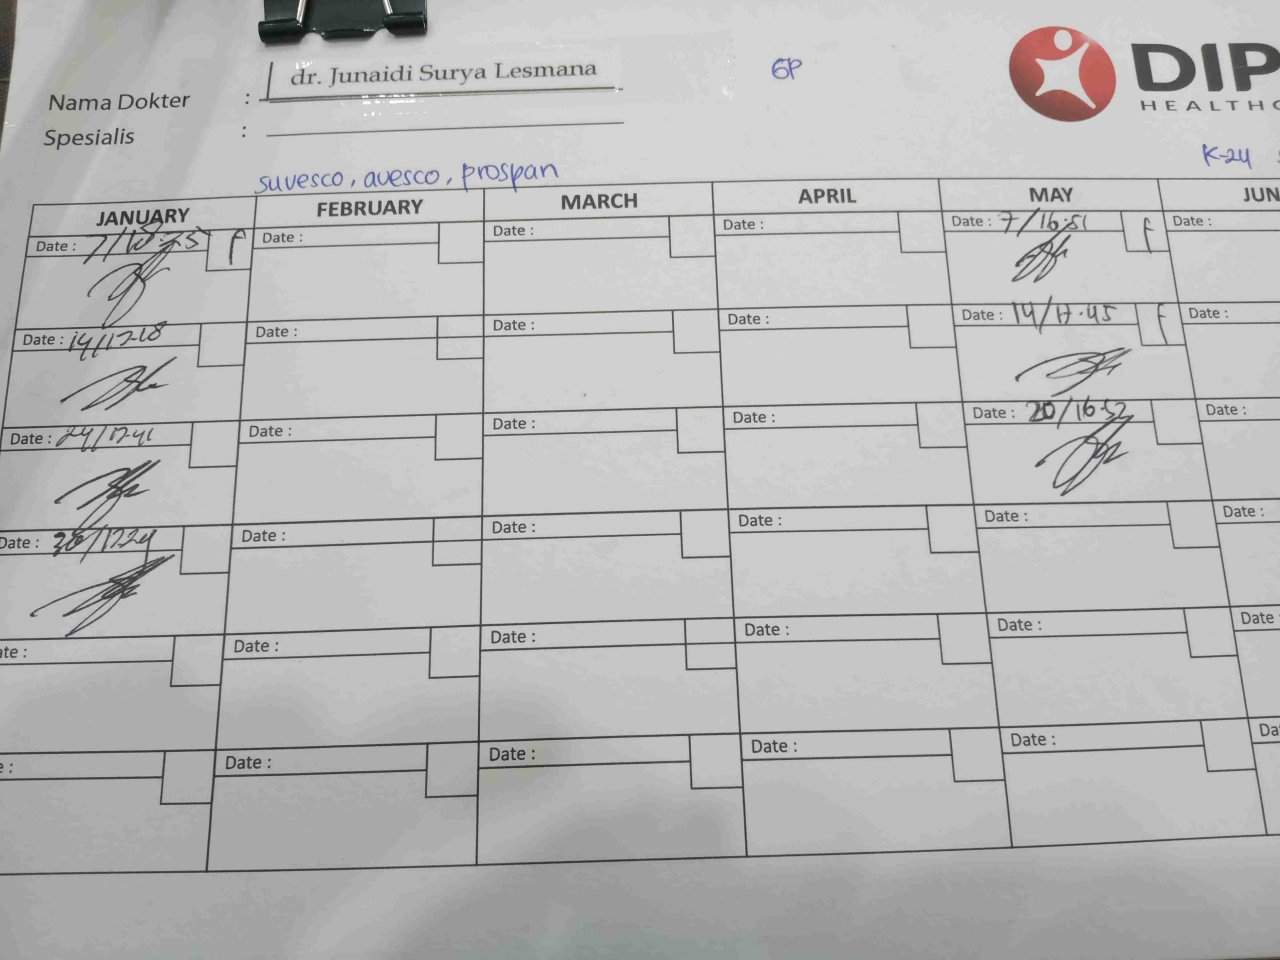 dr. Junaidi Surya Lesmana
GP
DIP
HEALTHC
Nama Dokter :
Spesialis :
K-24
suvesco, avesco, prospan
JANUARY FEBRUARY MARCH APRIL MAY JUN
Date : f Date : Date : Date : Date : 7/16.51 f Date :
Date : 14/17.18 Date : Date : Date : Date : 14/17.45 f Date :
Date : 24/17.41 Date : Date : Date : Date : 20/16.52 Date :
Date : Date : Date : Date : Date : Date :
ate : Date : Date : Date : Date : Date
e : Date : Date : Date : Date : Da